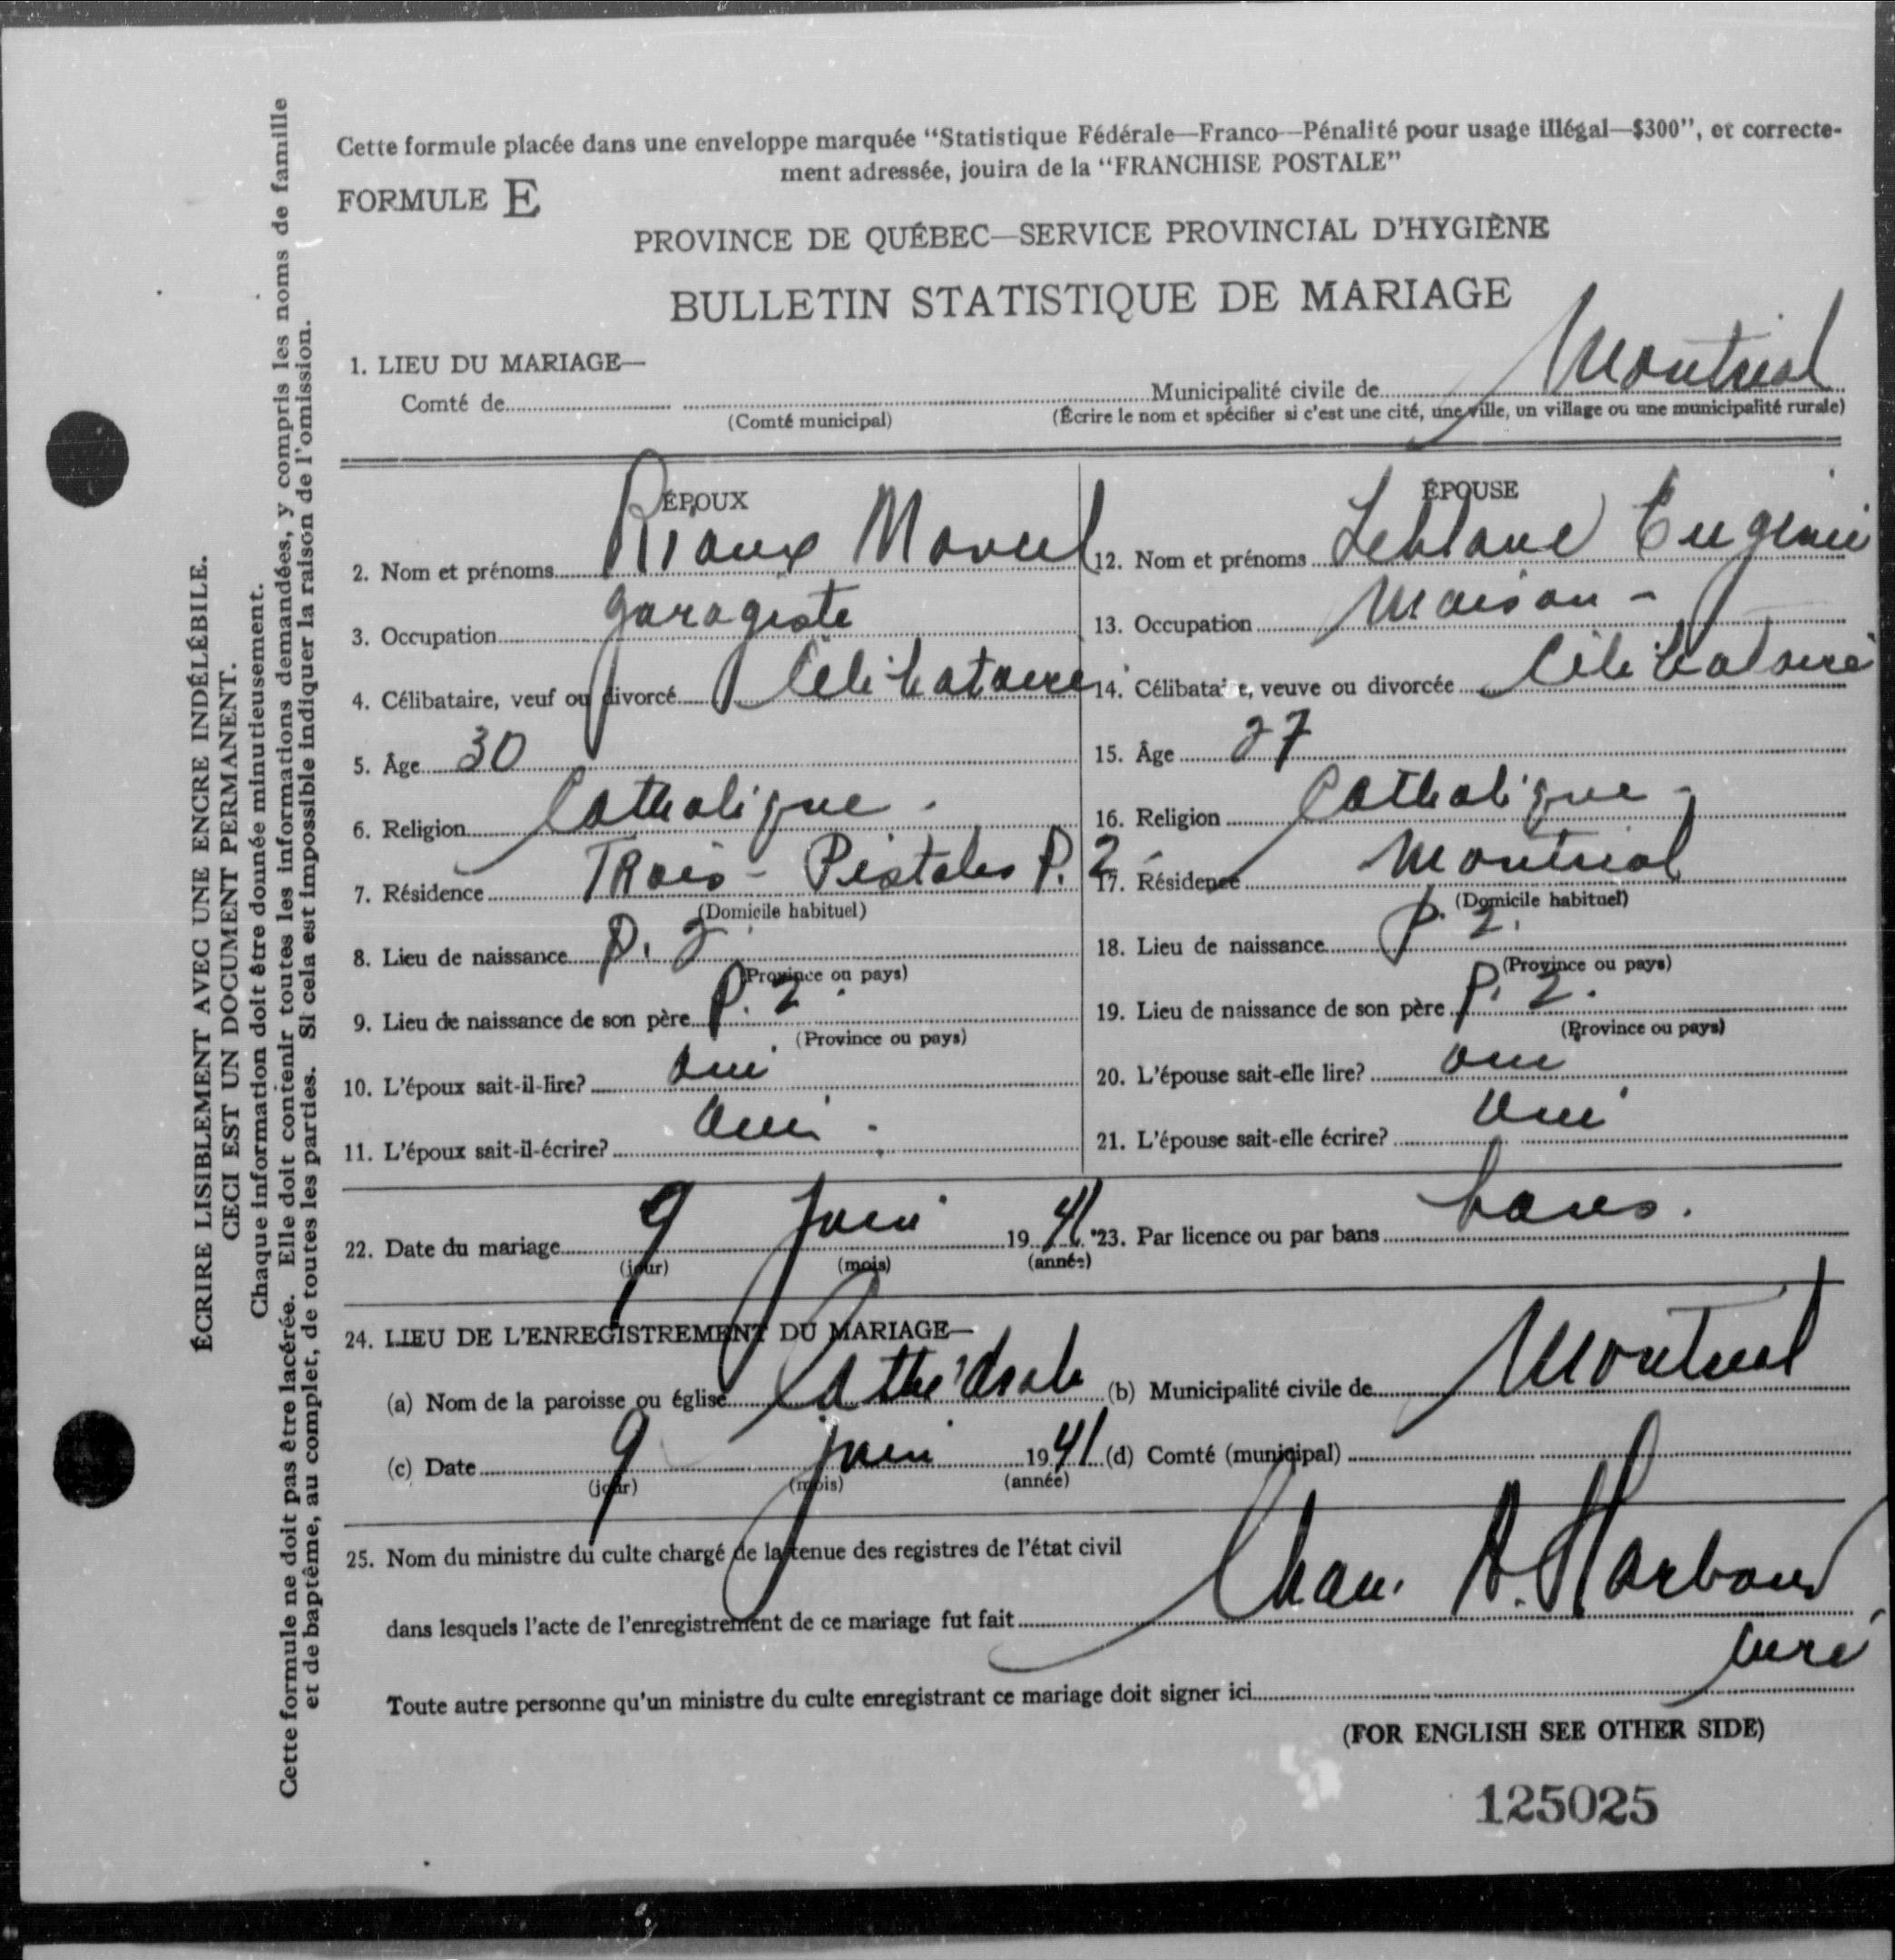 Cette formule placée dans une enveloppe marquée "Statistique Fédérale—Franco—Pénalité pour usage illégal—$300", et correcte-
ment adressée, jouira de la "FRANCHISE POSTALE"
FORMULE E
PROVINCE DE QUÉBEC—SERVICE PROVINCIAL D'HYGIÈNE
BULLETIN STATISTIQUE DE MARIAGE
1. LIEU DU MARIAGE—
Comté de Municipalité civile de Montréal
(Comté municipal) (Écrire le nom et spécifier si c'est une cité, une ville, un village ou une municipalité rurale)
ÉPOUX
2. Nom et prénoms Rioux Marcel
3. Occupation garagiste
4. Célibataire, veuf ou divorcé Célibataire
5. Âge 30
6. Religion Catholique.
7. Résidence Trois-Pistoles P. 2
(Domicile habituel)
8. Lieu de naissance P. 2
(Province ou pays)
9. Lieu de naissance de son père P. 2.
(Province ou pays)
10. L'époux sait-il-lire? oui
11. L'époux sait-il-écrire? Oui.
ÉPOUSE
12. Nom et prénoms Leblanc Eugénie
13. Occupation Maison -
14. Célibataire, veuve ou divorcée Célibataire
15. Âge 27
16. Religion Catholique -
17. Résidence Montréal
(Domicile habituel)
18. Lieu de naissance P. 2.
(Province ou pays)
19. Lieu de naissance de son père P. 2.
(Province ou pays)
20. L'épouse sait-elle lire? oui
21. L'épouse sait-elle écrire? Oui
22. Date du mariage 9 Juin 1941 23. Par licence ou par bans bans.
(jour) (mois) (année)
24. LIEU DE L'ENREGISTREMENT DU MARIAGE—
(a) Nom de la paroisse ou église Cathédrale (b) Municipalité civile de Montréal
(c) Date 9 Juin 1941 (d) Comté (municipal)
(jour) (mois) (année)
25. Nom du ministre du culte chargé de la tenue des registres de l'état civil
dans lesquels l'acte de l'enregistrement de ce mariage fut fait Chan. A. Harbour
curé
Toute autre personne qu'un ministre du culte enregistrant ce mariage doit signer ici
(FOR ENGLISH SEE OTHER SIDE)
125025
ÉCRIRE LISIBLEMENT AVEC UNE ENCRE INDÉLÉBILE.
CECI EST UN DOCUMENT PERMANENT.
Chaque information doit être donnée minutieusement.
Cette formule ne doit pas être lacérée. Elle doit contenir toutes les informations demandées, y compris les noms de famille
et de baptême, au complet, de toutes les parties. Si cela est impossible indiquer la raison de l'omission.